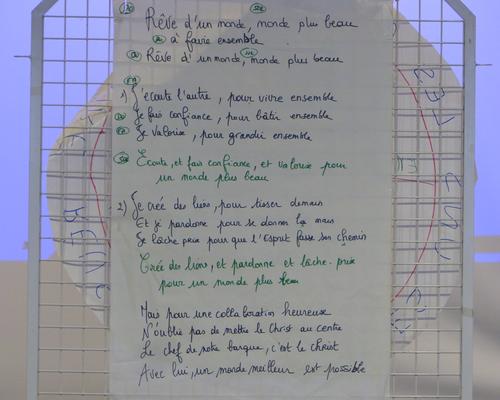 Rêve d'un monde, monde plus beau
à faire ensemble
Rêve d'un monde, monde plus beau
1) J'écoute l'autre, pour vivre ensemble
Je fais confiance, pour bâtir ensemble
Je valorise, pour grandir ensemble
Écoute, et fais confiance, et valorise pour
un monde plus beau
2) Je crée des liens, pour tisser demain
Et je pardonne pour se donner la main
Je lâche prise pour que l'Esprit fasse son chemin
Crée des liens, et pardonne et lâche-prise
pour un monde plus beau
Mais pour une collaboration heureuse
N'oublie pas de mettre le Christ au centre
Le chef de notre barque, c'est le Christ
Avec lui, un monde meilleur est possible